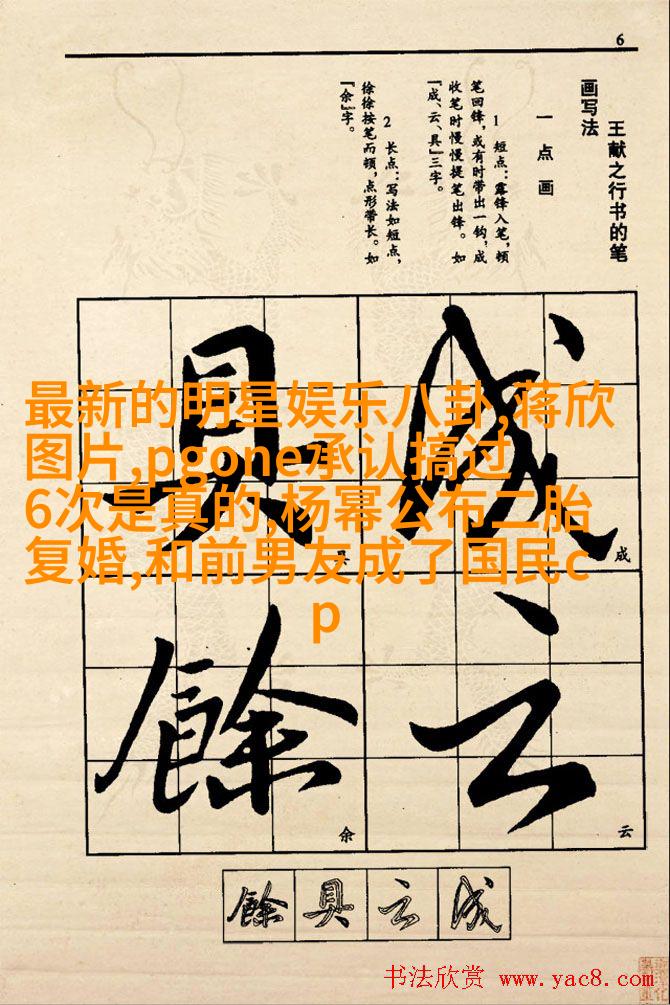 6
王献之行书的笔
画写法
一点画
1 短点：露锋入笔，顿
笔回锋，或有时带出一钩，成
收笔时慢慢提笔出锋。如
『成、云、具』三字。
2 长点：写法如短点，
徐徐按笔而顿，点形带长。如
『余』字。
成
成
云
云
具
具
餘
余
最新的明星娱乐八卦,蒋欣
图片,pgone承认搞过
6次是真的,杨幂公布二胎
复婚,和前男友成了国民c
p
餘 具 云 成
书法欣赏 www.yac8.com